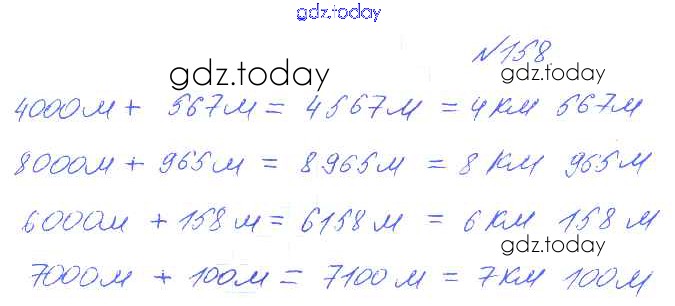 gdz.today
№158
gdz.today gdz.today
4000м + 567м = 4567м = 4км 567м
8000м + 965м = 8965м = 8 км 965м
6000м + 158м = 6158м = 6км 158м
gdz.today
7000м + 100м = 7100м = 7км 100м